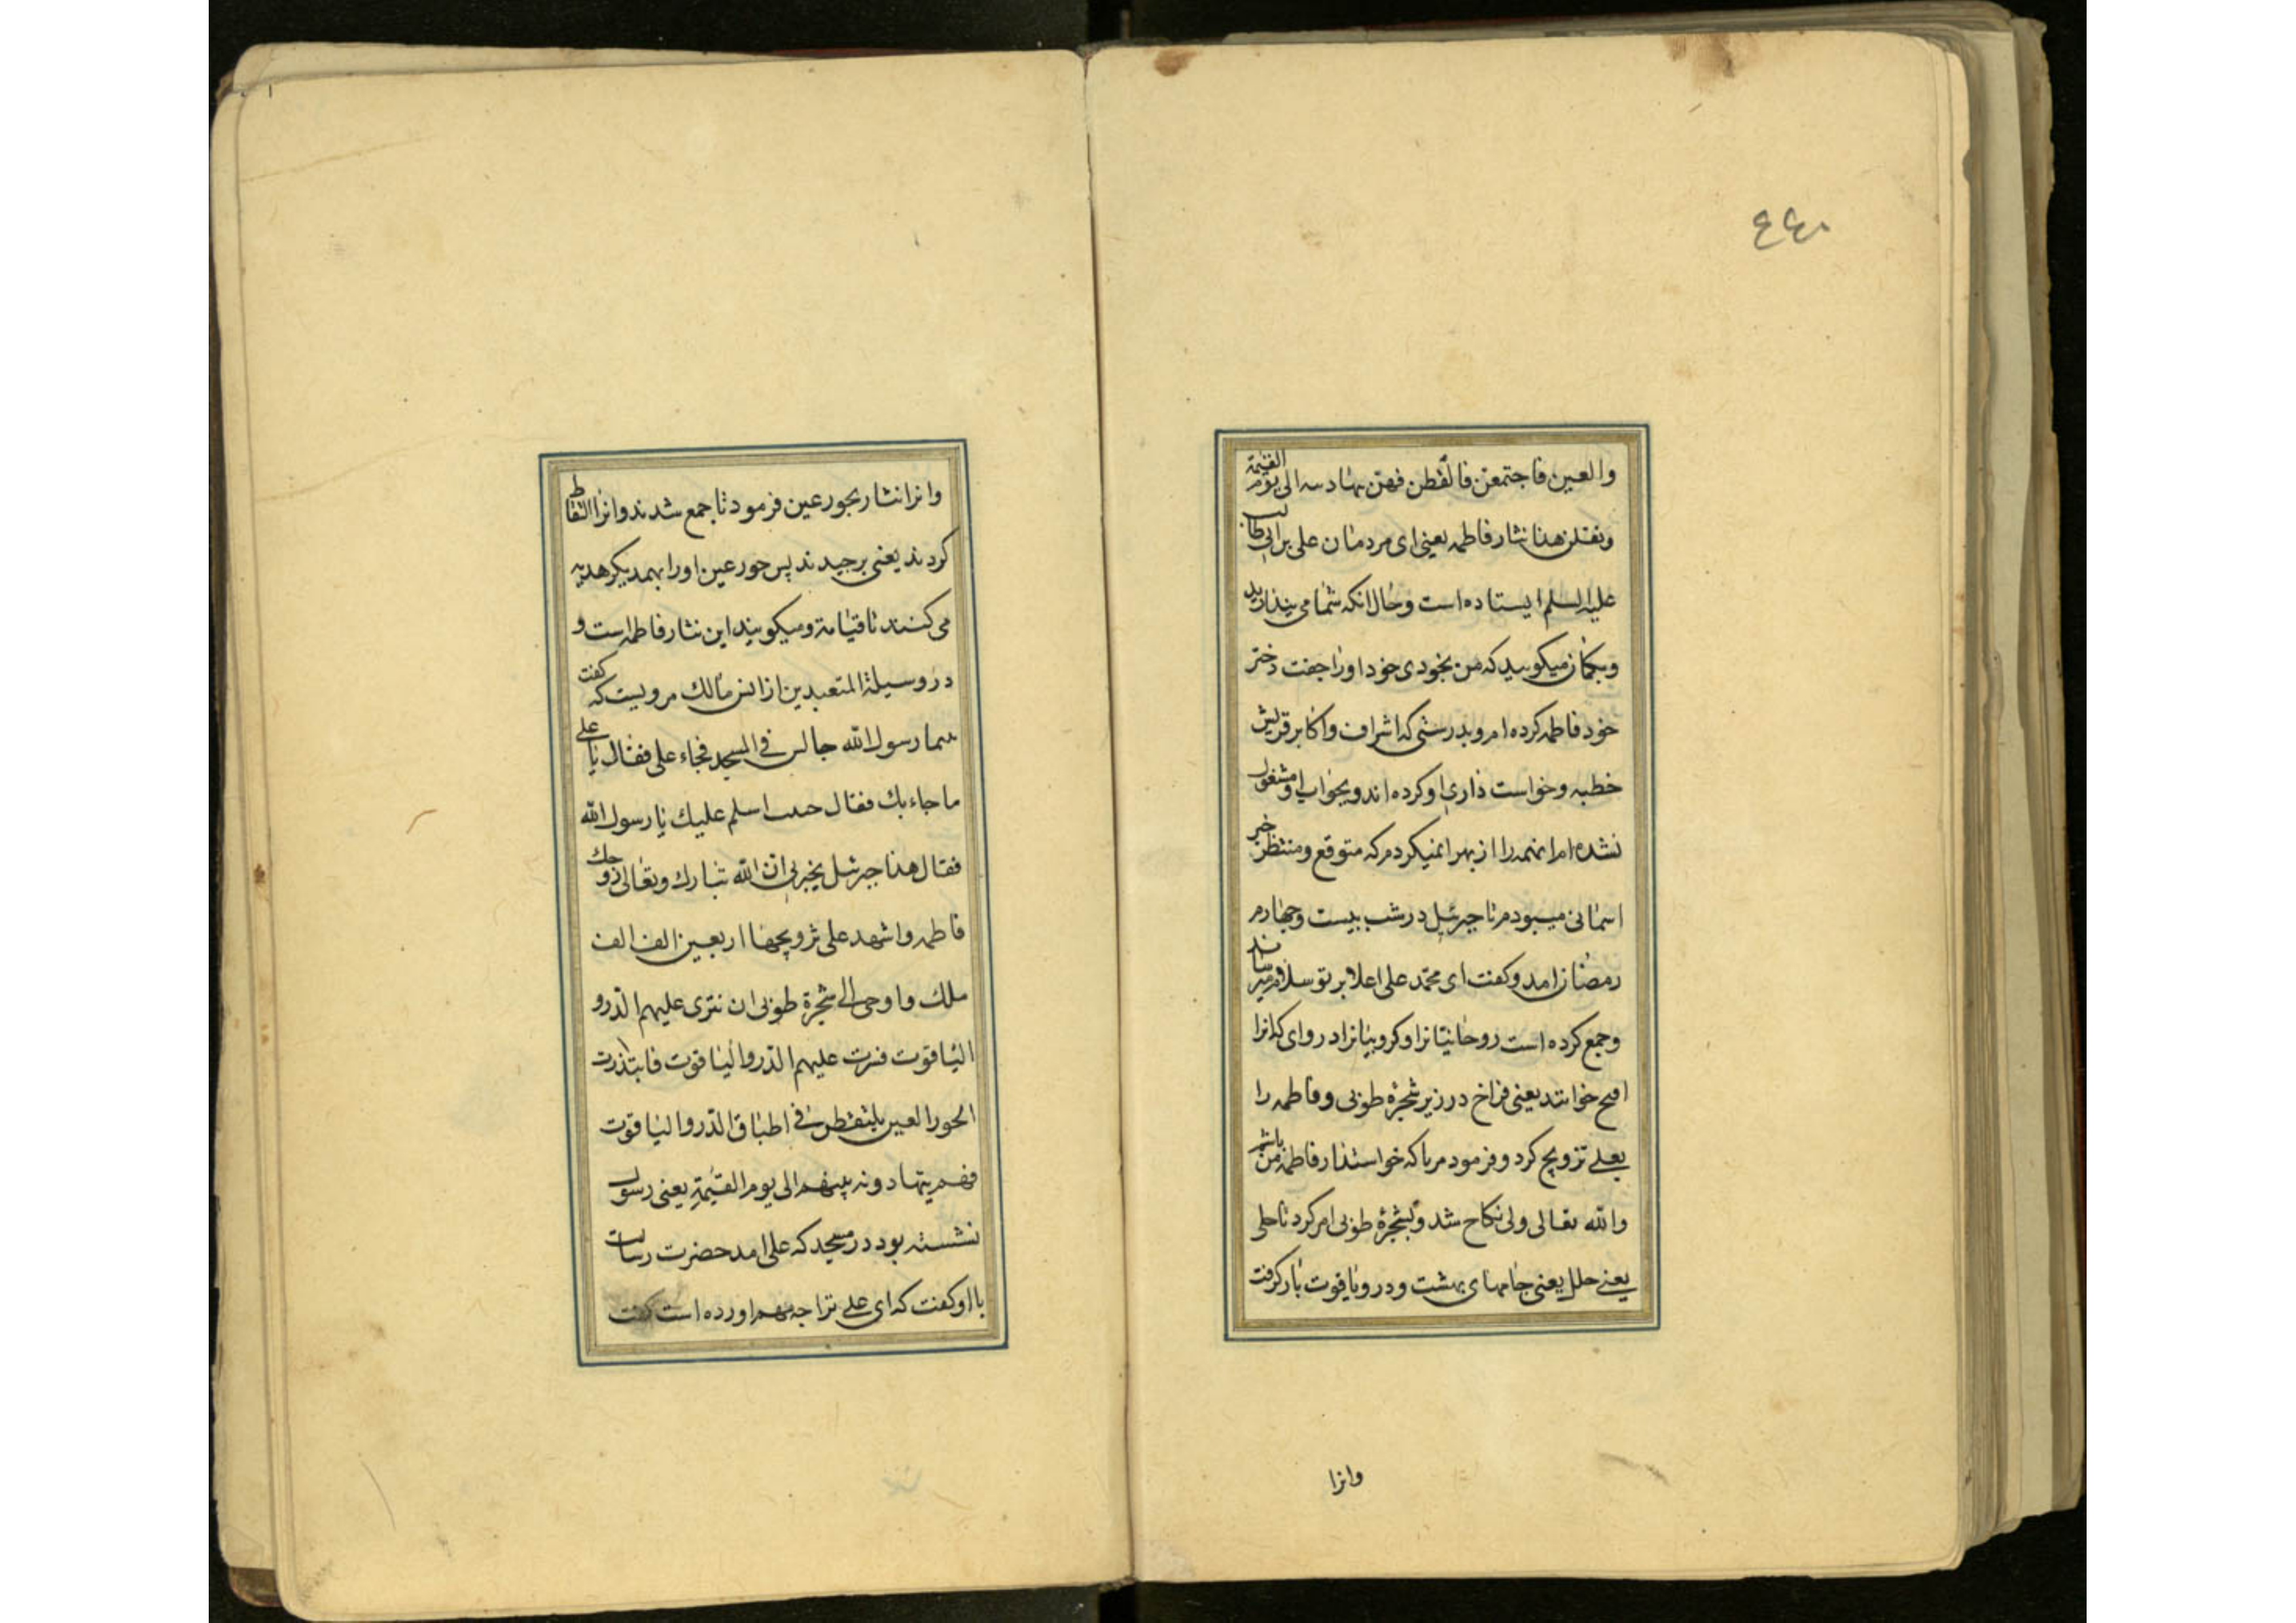 ٤٤٠
والعین فاجتمعن فالتقطن فهن یتهادینه الی یوم القیمة
ویقلن هذا نثار فاطمه یعنی ای مردمان علی بن ابی طالب
علیه السلم ایستاده است وحال انکه شما می پندارید
وبکمان میکویید که من بخودی خود اورا جفت دختر
خود فاطمه کرده ام و بدرستی که اشراف واکابر قریش
خطبه وخواست ذاری او کرده اند وبجواب او مشغول
نشده ام این همه را از بهر ان میکردم که متوقع ومنتظر خبر
اسمانی میبودم تا جبرئیل در شب بیست وچهارم
رمضان امد وکفت ای محمد علی اعلا بر تو سلام میرساند
وجمع کرده است روحانیانرا وکروبیانرا در وادی که انرا
افیح خوانند یعنی فراخ در زیر شجرۀ طوبی وفاطمه را
بعلی تزویج کرد وفرمود مرا که خواستدار فاطمه من باشم
والله تعالی ولی نکاح شد وبشجرۀ طوبی امر کرد تا حلی
یعنی حلل یعنی جامهای بهشت ودر ویاقوت بار کرفت
وانرا
وانرا نثار بحور عین فرمود تا جمع شدند وانرا التقاط
کردند یعنی برچیدند پس حور عین اورا بهمدیکر هدیه
می کنند تا قیامة ومیکویند این نثار فاطمه است و
در وسیلة المتعبدین از انس مالک مرویست که کفت
بینما رسول الله جالس فی المسجد فجاء علی فقال یا علی
ما جاء بك فقال جیت اسلم علیك یا رسول الله
فقال هذا جبرئیل یخبرنی ان الله تبارك وتعالی زوجك
فاطمه واشهد علی تزویجها اربعین الف الف
ملك واوحی الی شجرة طوبی ان نثری علیهم الدر و
الیاقوت فنثرت علیهم الدر والیاقوت فابتدرت
الحور العین یلتقطن فی اطباق الدر والیاقوت
فهم یتهادونه بینهم الی یوم القیمة یعنی رسول
نشسته بود در مسجد که علی امد حضرت رسالت
با او کفت که ای علی ترا چه مهم اورده است کفت